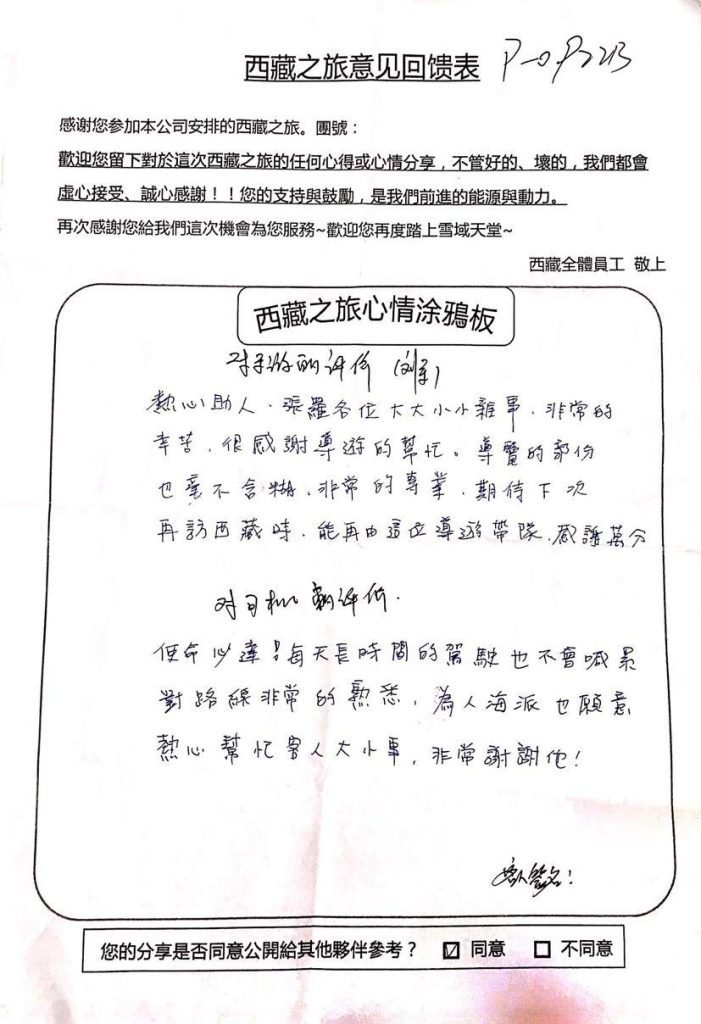 西藏之旅意见回馈表
感谢您参加本公司安排的西藏之旅。團號：
歡迎您留下對於這次西藏之旅的任何心得或心情分享，不管好的、壞的，我們都會
虛心接受、誠心感謝！！您的支持與鼓勵，是我們前進的能源與動力。
再次感謝您給我們這次機會為您服務~歡迎您再度踏上雪域天堂~
西藏全體員工 敬上
西藏之旅心情涂鴉板
对导游的评价
熱心助人，張羅各位大大小小雜事，非常的
辛苦，很感謝導遊的幫忙。導覽的部份
也毫不含糊，非常的專業，期待下次
再訪西藏時，能再由這位導遊帶隊，感謝萬分
对司机的评价.
使命必達，每天長時間的駕駛也不會喊累
對路線非常的熟悉，為人海派也願意
熱心幫忙客人大小事，非常謝謝他！
您的分享是否同意公開給其他夥伴參考？ ☑ 同意 □ 不同意